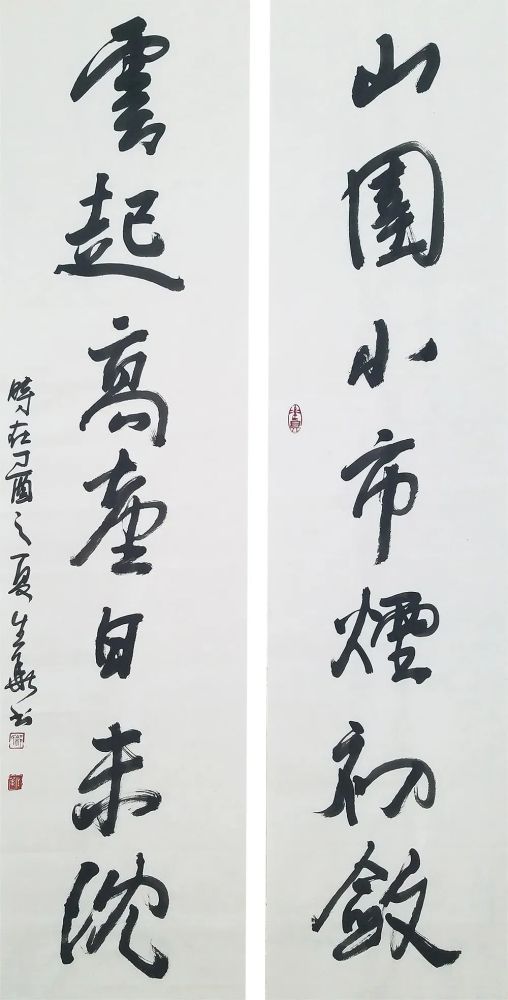 山圍小市煙初斂
雲起高臺日未沈
時在丁酉之夏生華書